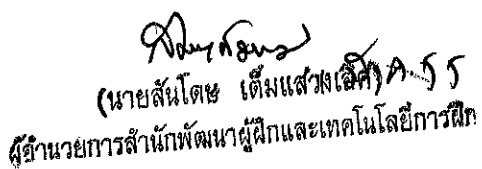 (นายสันโดษ เต็มแสวงเลิศ)
ผู้อำนวยการสำนักพัฒนาผู้ฝึกและเทคโนโลยีการฝึก